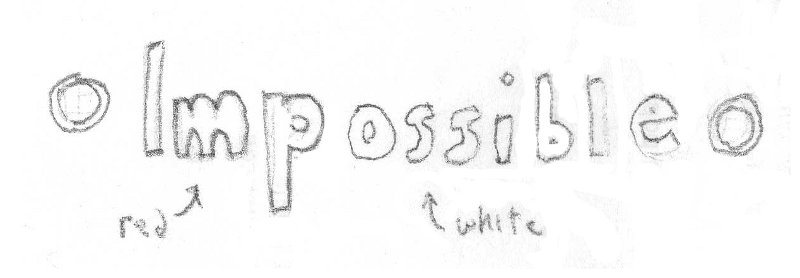 Impossible
red white